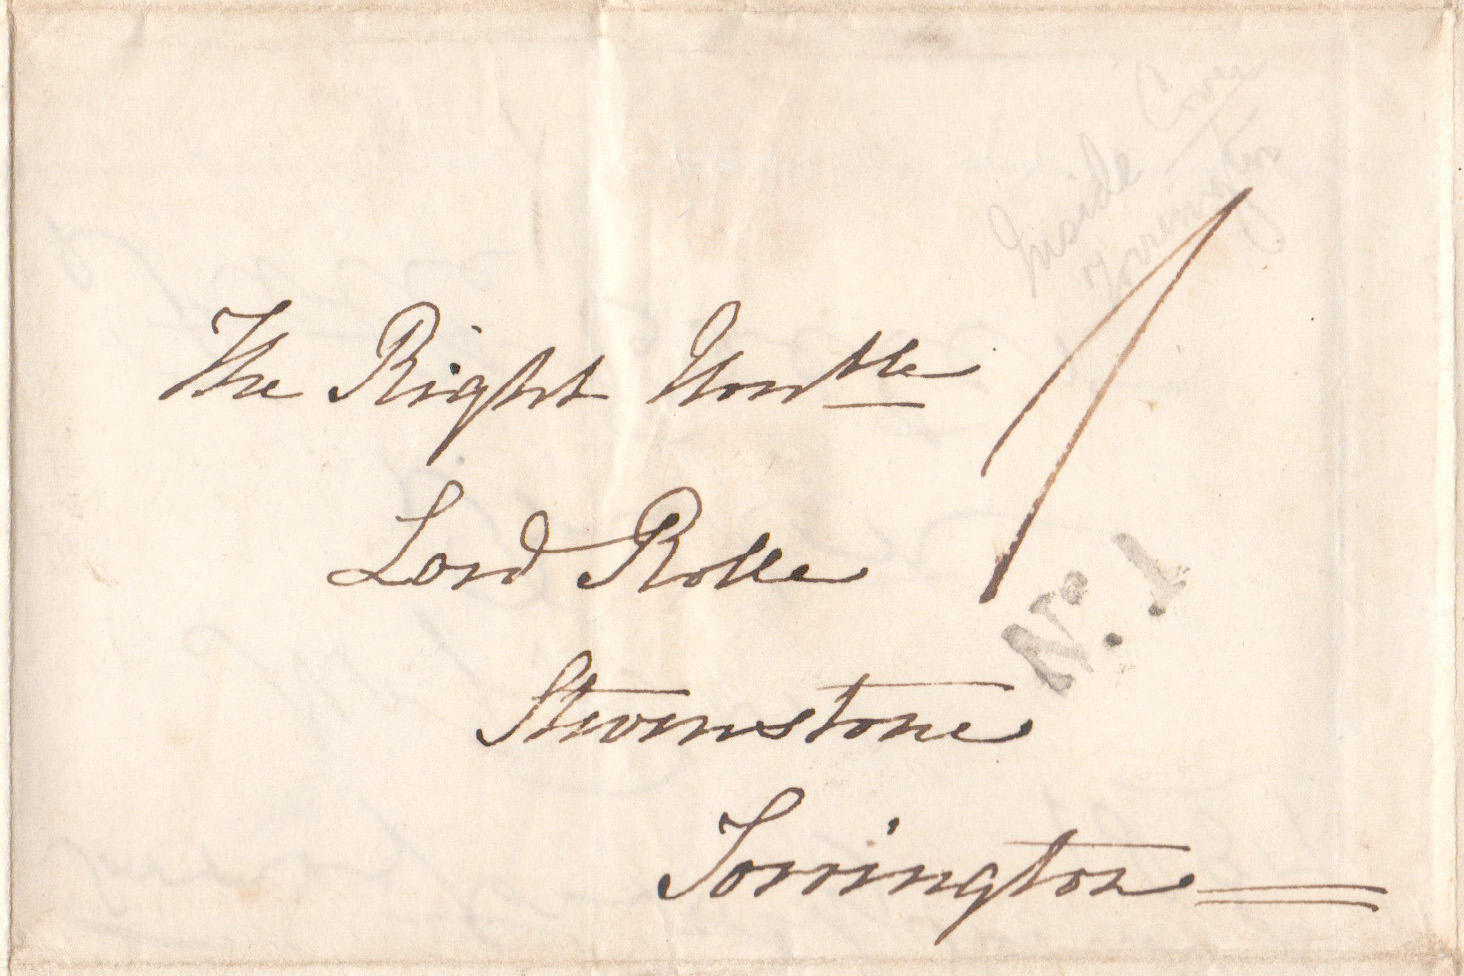 Inside Cover
Torrington
The Right Honble
Lord Rolle
Stevenstone
Torrington
No. 1